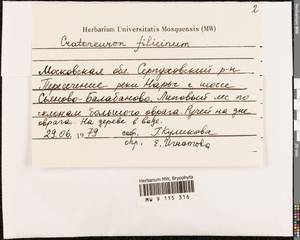 2
Herbarium Universitatis Mosquensis (MW)
Cratoneuron filicinum
Московская обл. Серпуховский р-н
Пересечение реки Нары с шоссе
Балабаново. Липовый лес по
склонам большого оврага. Ручей на дне
оврага. На дереве в воде.
29.06.1979 Г. Куликова
Е. Игнатова
Herbarium MW, Bryophyta
MW 9 115 316